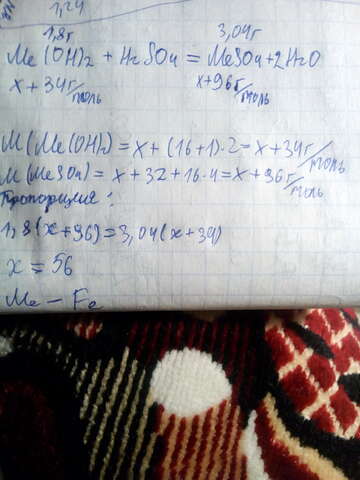 1,24
1,8г 3,04г
Me(OH)2 + H2SO4 = MeSO4 + 2H2O
x+34г/моль x+96г/моль
M(Me(OH)2) = x + (16+1)·2 = x+34г/моль
M(MeSO4) = x + 32 + 16·4 = x+96г/моль
Пропорция:
1,8(x+96)=3,04(x+34)
x = 56
Me – Fe